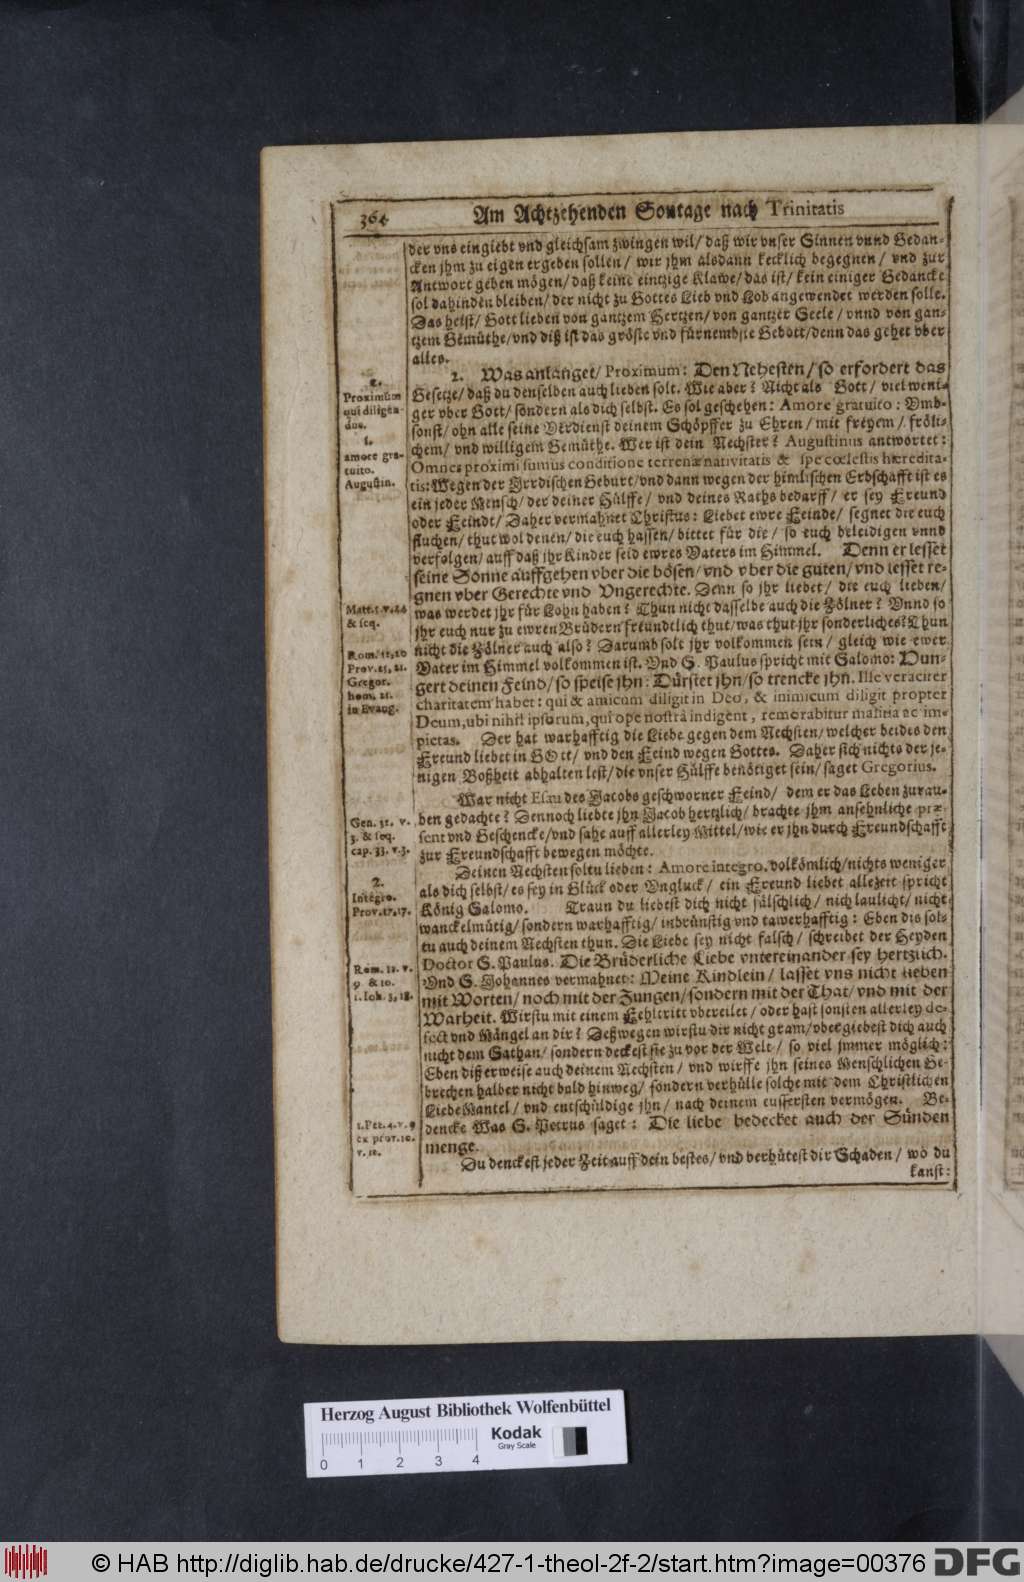 364 Am Achtzehenden Sontage nach Trinitatis
der vns eingiebt vnd gleichsam zwingen wil/ daß wir vnser Sinnen vnnd Gedan-
cken jhm zu eigen ergeben sollen/ wir jhm alsdann kecklich begegnen/ vnd zur
Antwort geben mögen/ daß keine eintzige Klawe/ das ist/ kein einiger Gedancke
sol dahinden bleiben/ der nicht zu Gottes Lieb vnd Lob angewendet werden solle.
Das heist/ Gott lieben von gantzem Hertzen/ von gantzer Seele/ vnnd von gan-
tzem Gemüthe/ vnd diß ist das gröste vnd fürnembste Gebott/ denn das gehet vber
alles.
2.
Proximum
qui diligen-
dus.
1.
amore gra-
tuito.
Augustin.
2. Was anlanget/ Proximum: Den Nehesten/ so erfordert das
Gesetze/ daß du denselben auch lieben solt. Wie aber? Nicht als Gott/ viel weni-
ger vber Gott/ sondern als dich selbst. Es sol geschehen: Amore gratuito: Vmb-
sonst/ ohn alle seine Verdienst deinem Schöpffer zu Ehren/ mit freyem/ fröli-
chem/ vnd willigem Gemüthe. Wer ist dein Nechster? Augustinus antwortet:
Omnes proximi sumus conditione terrenæ nativitatis & spe cœlestis hæredita-
tis: Wegen der Irrdischen Geburt/ vnd dann wegen der himlischen Erbschafft ist es
ein jeder Mensch/ der deiner Hülffe/ vnd deines Raths bedarff/ er sey Freund
oder Feindt/ Daher vermahnet Christus: Liebet ewre Feinde/ segnet die euch
fluchen/ thut wol denen/ die euch hassen/ bittet für die/ so euch beleidigen vnnd
verfolgen/ auff daß jhr Kinder seid ewres Vaters im Himmel. Denn er lesset
seine Sonne auffgehen vber die bösen/ vnd vber die guten/ vnd lesset re-
gnen vber Gerechte vnd Vngerechte. Denn so jhr liebet/ die euch lieben/
was werdet jhr für Lohn haben? Thun nicht dasselbe auch die Zölner? Vnnd so
jhr euch nur zu ewren Brüdern freundtlich thut/ was thut jhr sonderliches? Thun
nicht die Zölner auch also? Darumb solt jhr volkommen sein/ gleich wie ewer
Vater im Himmel volkommen ist. Vnd S. Paulus spricht mit Salomo: Hun-
gert deinen Feind/ so speise jhn: Dürstet jhn/ so trencke jhn. Ille veraciter
charitatem habet: qui & amicum diligit in Deo, & inimicum diligit propter
Deum, ubi nihil ipsorum, qui ope nostrâ indigent, remorabitur malitia ac im-
pietas. Der hat warhafftig die Liebe gegen dem Nechsten/ welcher beides den
Freund liebet in GOtt/ vnd den Feind wegen Gottes. Daher sich nichts der je-
nigen Boßheit abhalten lest/ die vnser Hülffe benötiget sein/ saget Gregorius.
Matt. 5. v. 44
& seq.
Rom. 12, 20
Prov. 25, 21.
Gregor.
hom. 21.
in Evang.
War nicht Esau des Jacobs geschworner Feind/ dem er das Leben zurau-
ben gedachte? Dennoch liebte jhn Jacob hertzlich/ brachte jhm ansehnliche præ-
sent vnd Geschencke/ vnd sahe auff allerley Mittel/ wie er jhn durch Freundschafft
zur Freundschafft bewegen möchte.
Gen. 32. v.
3. & seq.
cap. 33. v. 3.
Deinen Nechsten soltu lieben: Amore integro, volkömlich/ nichts weniger
als dich selbst/ es sey in Glück oder Vngluck/ ein Freund liebet allezeit spricht
König Salomo. Traun du liebest dich nicht fälschlich/ nich laulicht/ nicht
wanckelmütig/ sondern warhafftig/ inbrünstig vnd tawerhafftig: Eben dis sol-
tu auch deinem Nechsten thun. Die Liebe sey nicht falsch/ schreibet der Heyden
Doctor S. Paulus. Die Brüderliche Liebe vntereinander sey hertzlich.
Vnd S. Johannes vermahnet: Meine Kindlein/ lasset vns nicht lieben
mit Worten/ noch mit der Zungen/ sondern mit der That/ vnd mit der
Warheit. Wirstu mit einem Fehltritt vbereilet/ oder hast sonsten allerley de-
fect vnd Mängel an dir? Deßwegen wirstu dir nicht gram/ vbergiebest dich auch
nicht dem Sathan/ sondern deckest sie zu vor der Welt/ so viel jmmer möglich:
Eben diß erweise auch deinem Nechsten/ vnd wirffe jhn seines Menschlichen Ge-
brechen halber nicht bald hinweg/ sondern verhülle solche mit dem Christlichen
Liebe Mantel/ vnd entschüldige jhn/ nach deinem eussersten vermögen. Be-
dencke Was S. Petrus saget: Die liebe bedecket auch der Sünden
menge.
2.
Integro.
Prov. 17, 17.
Rom. 12. v.
9 & 10.
1. Joh. 3, 18.
1. Pet. 4. v. 8
ex prov. 10.
v. 12.
Du denckest jeder Zeit auff dein bestes/ vnd verhütest dir Schaden/ wo du
kanst:
Herzog August Bibliothek Wolfenbüttel
Kodak
Gray Scale
0 1 2 3 4
© HAB http://diglib.hab.de/drucke/427-1-theol-2f-2/start.htm?image=00376 DFG